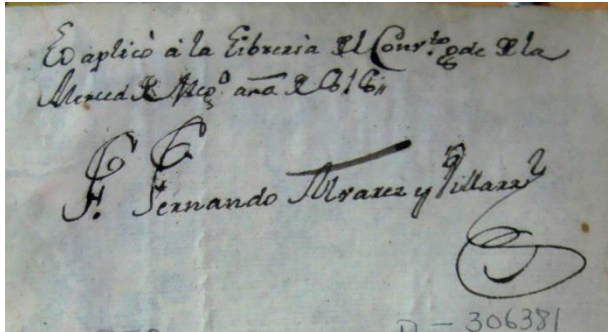 Se aplicó á la Libreria del Conv.to gde de la
Merced de Mex.o año de 1816
Fr. Fernando Alvarez y Villarrl
306381